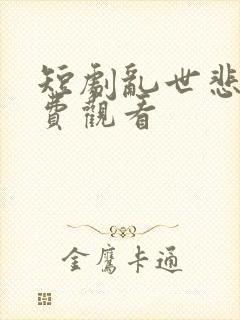 短劇亂世悲
費觀看
金鷹卡通